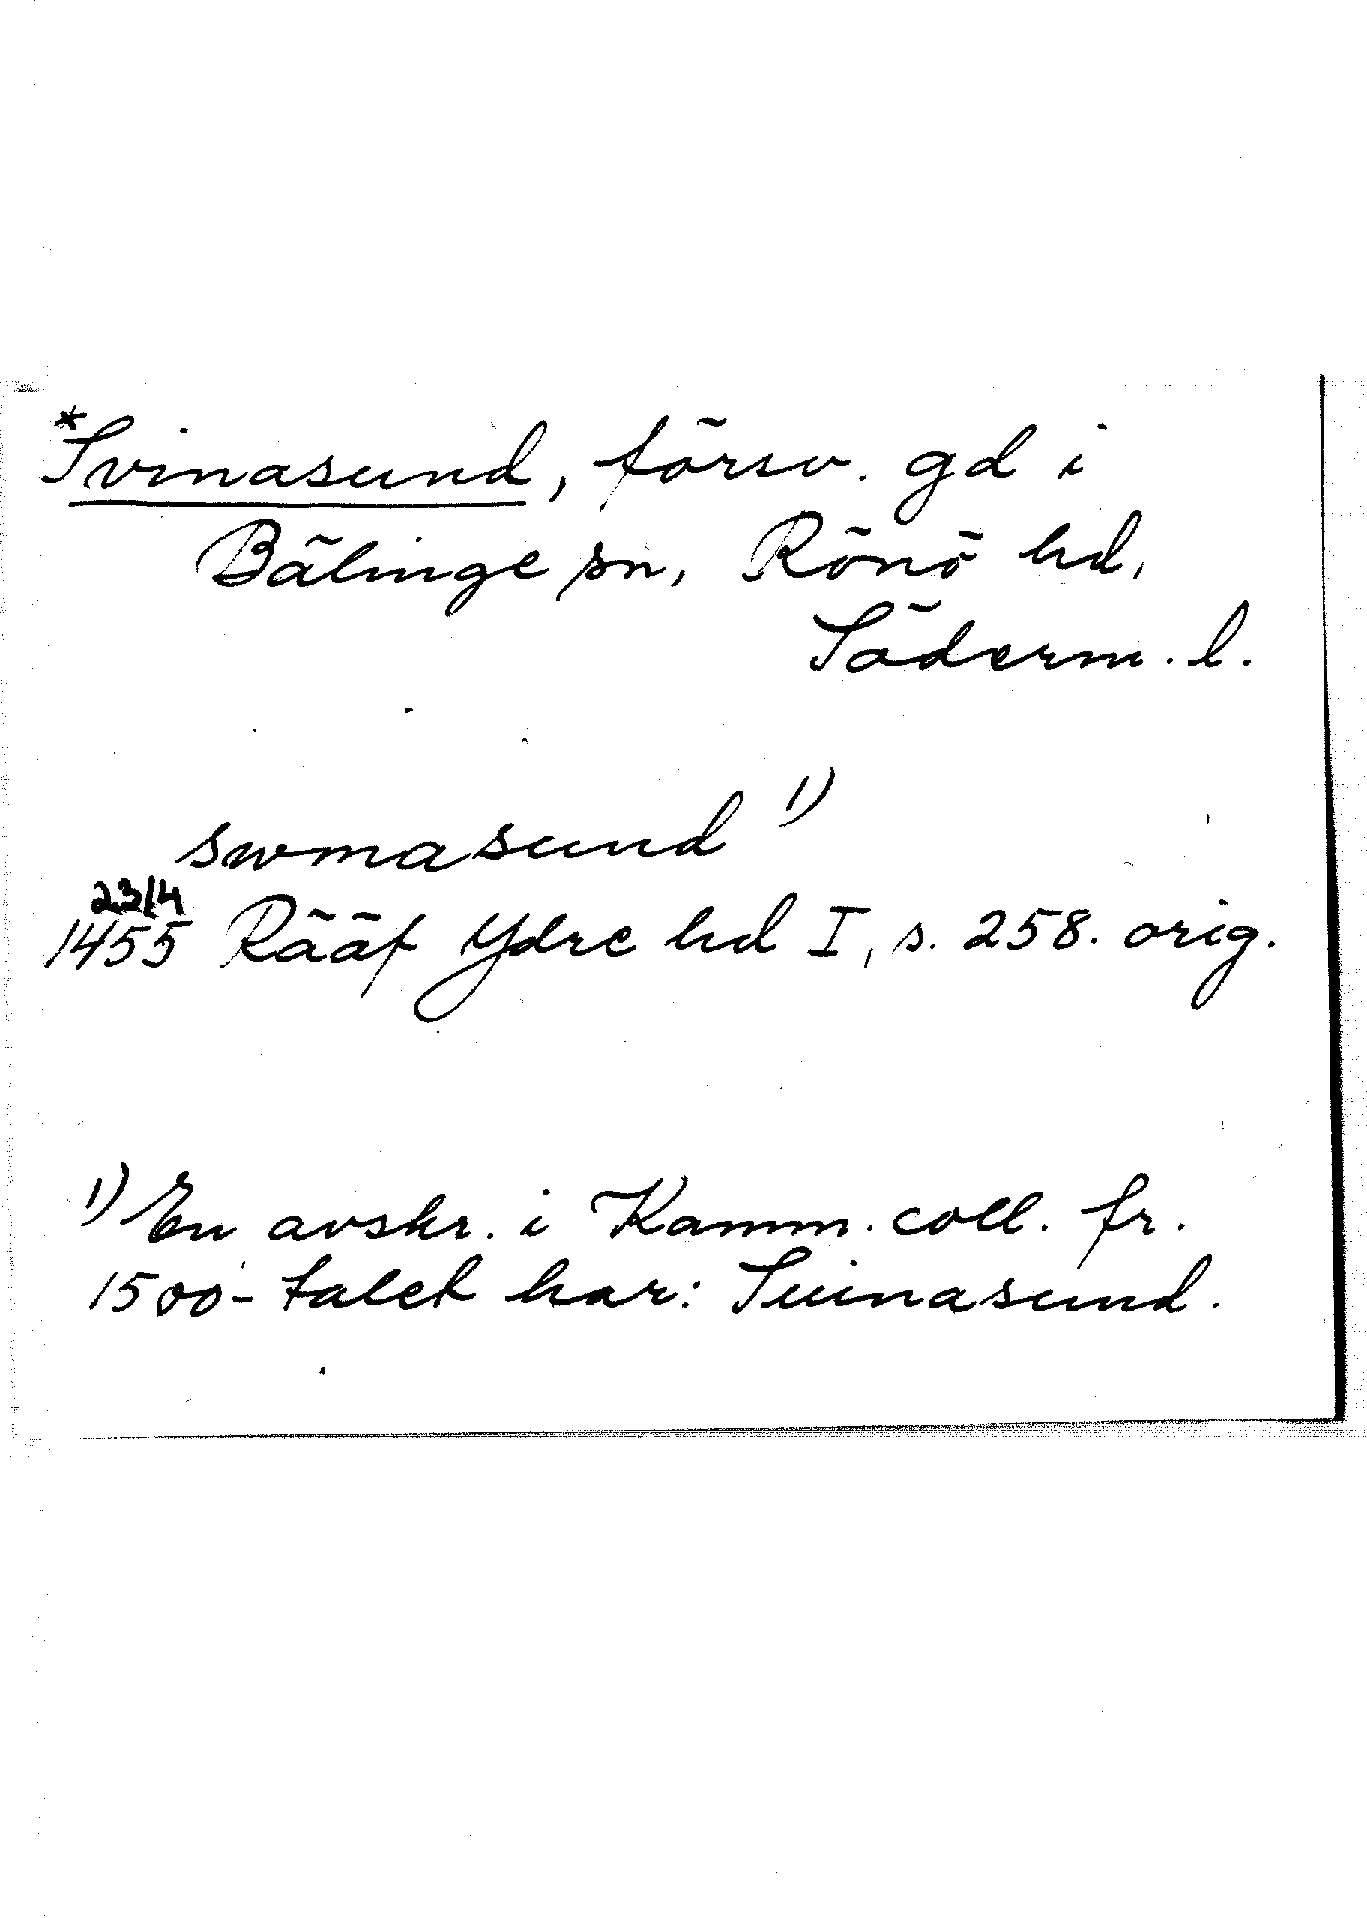 *Svinasund, försv. gd i
Bälinge sn, Rönö hd,
Söderm. l.
swmasund 1)
23/4
1455 Rääf Ydre hd I, s. 258. orig.
1) En avskr. i Kamm. coll. fr.
1500-talet har: Suinasund.